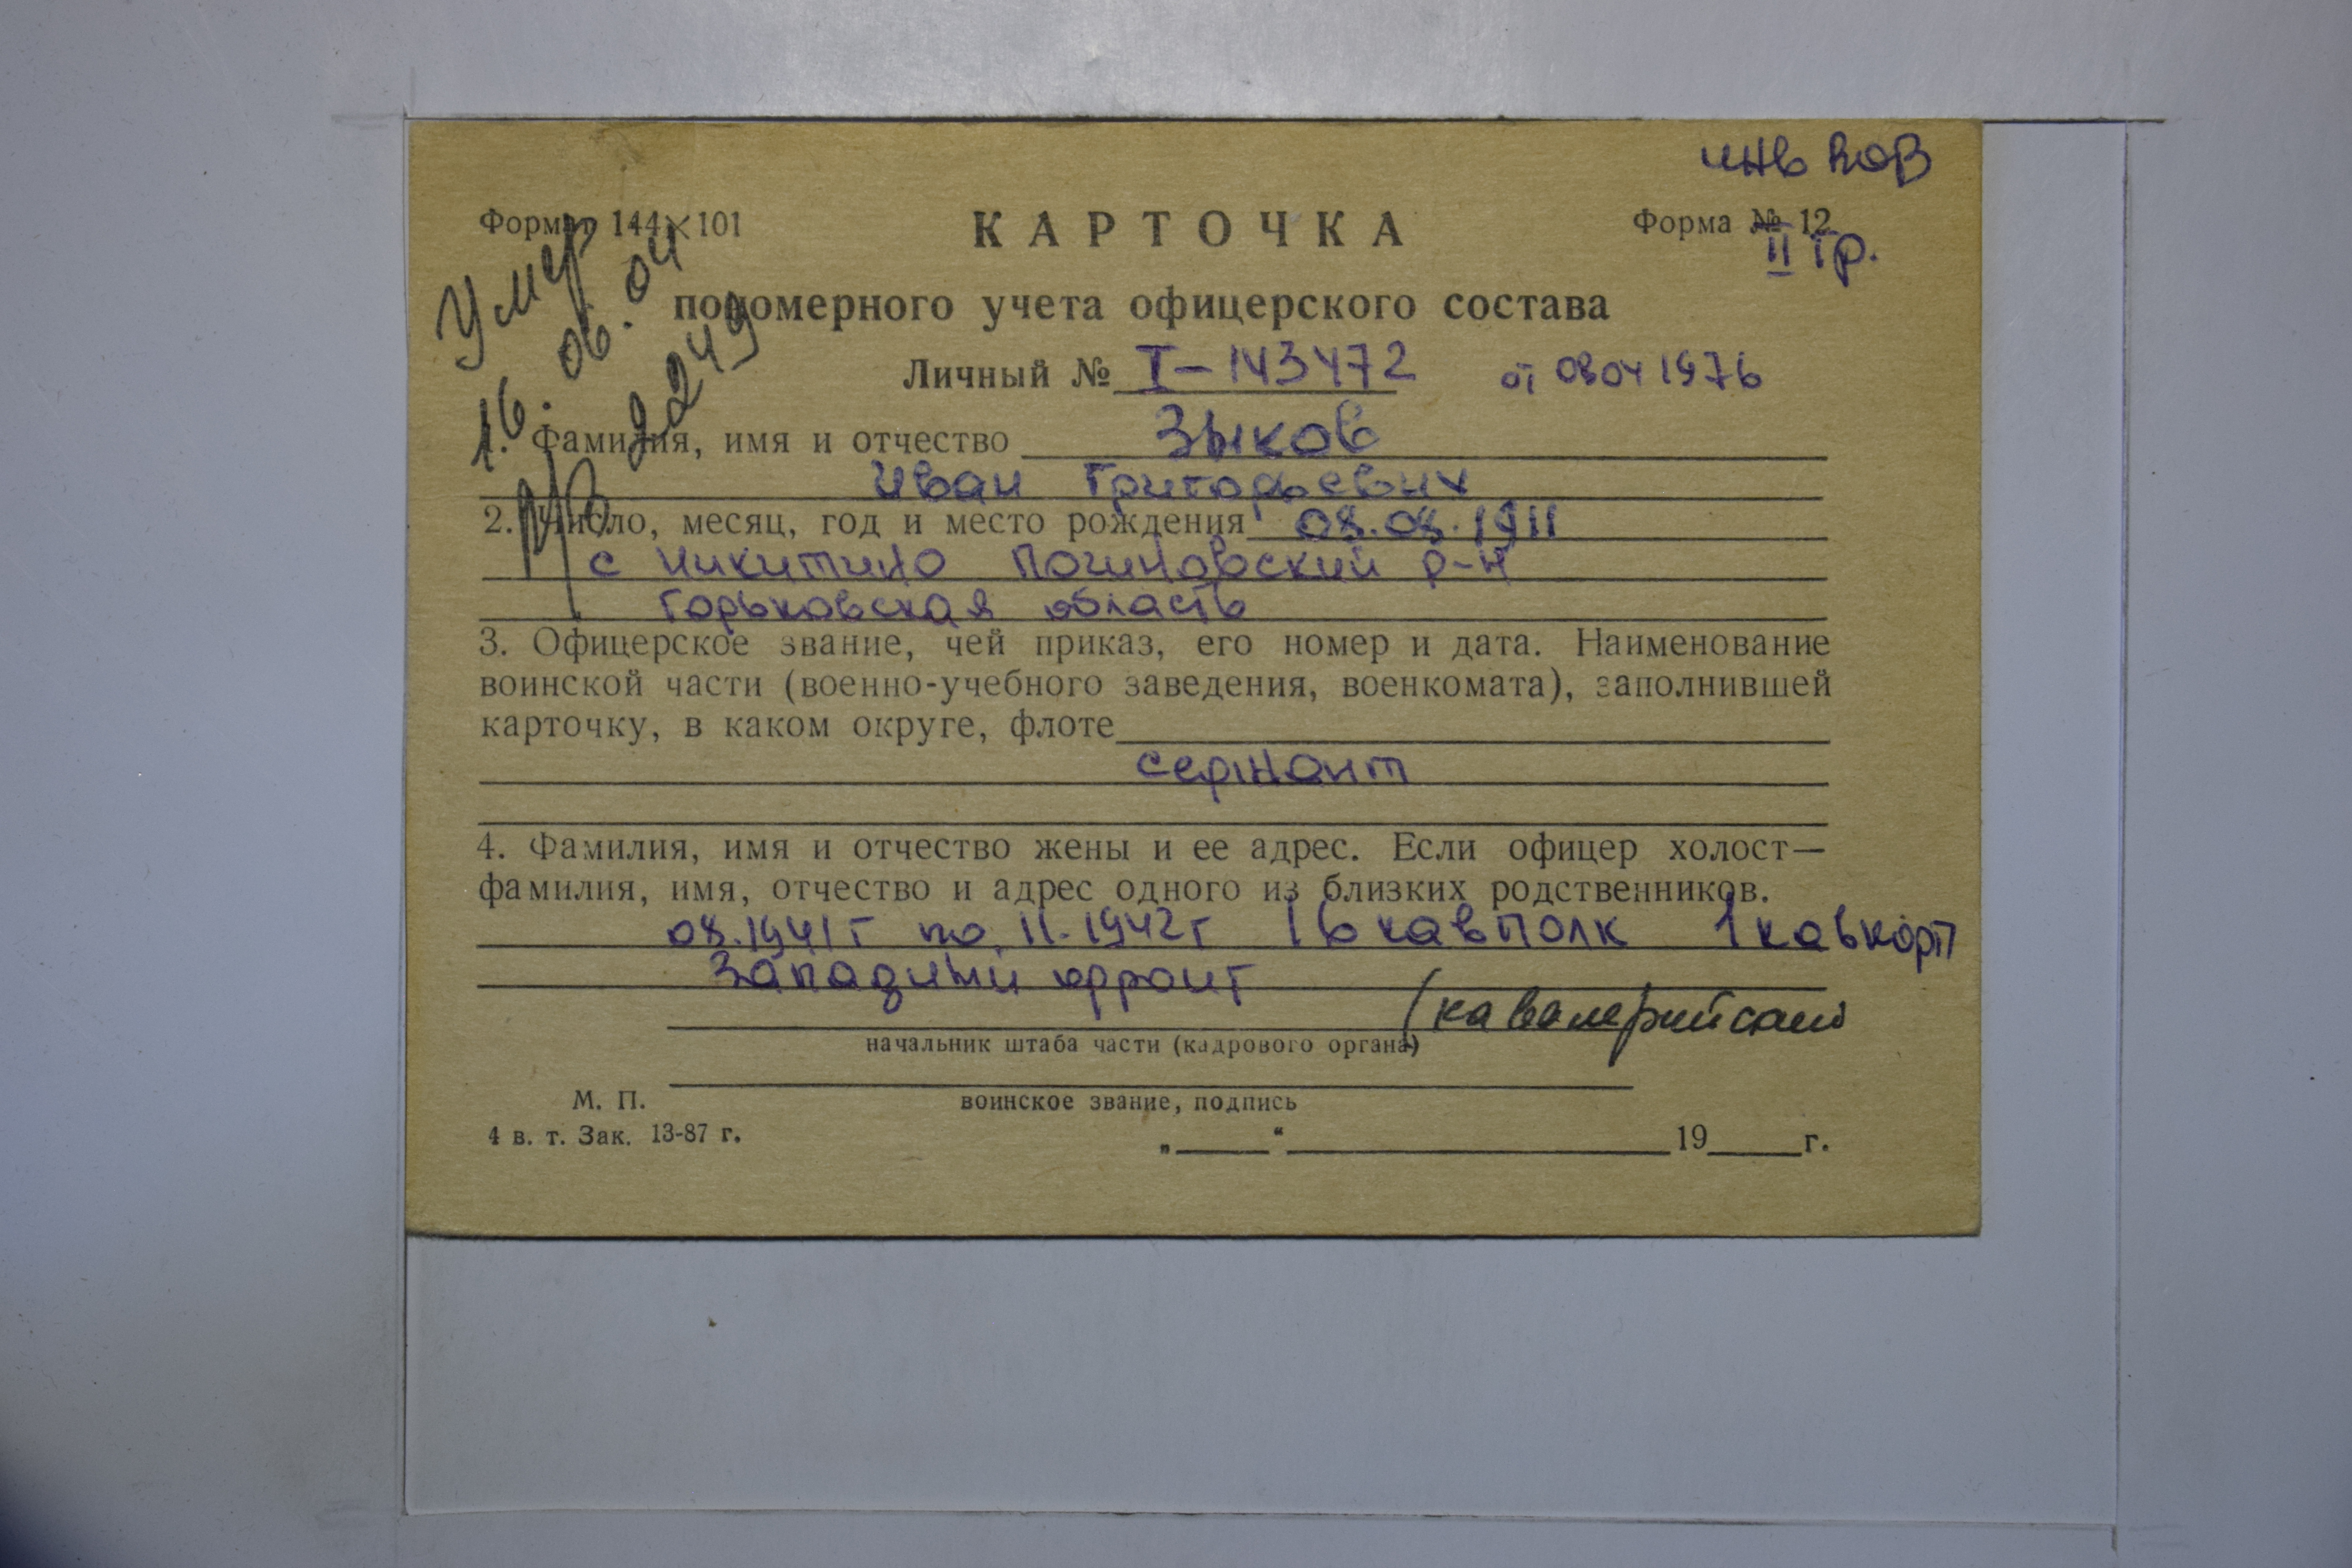 инв ВОВ
Формат 144×101
КАРТОЧКА
Форма № 12
II гр.
Умер
16. 06. 04
92249
пономерного учета офицерского состава
Личный № I-143472 от 08 04 1976
1. Фамилия, имя и отчество Зыков
Иван Григорьевич
2. Число, месяц, год и место рождения 08.08.1911
с Никитино Починовский р-н
Горьковская область
3. Офицерское звание, чей приказ, его номер и дата. Наименование
воинской части (военно-учебного заведения, военкомата), заполнившей
карточку, в каком округе, флоте
сержант
4. Фамилия, имя и отчество жены и ее адрес. Если офицер холост—
фамилия, имя, отчество и адрес одного из близких родственников.
08.1941г по 11.1942г 16 кавполк 1 кавкорп
Западный фронт
(кавалерийский)
начальник штаба части (кадрового органа)
М. П.
воинское звание, подпись
4 в. т. Зак. 13-87 г.
„ “ 19 г.